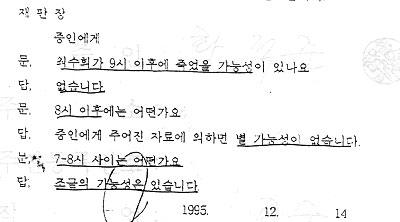 재 판 장
증인에게
문. 최수희가 9시 이후에 죽었을 가능성이 있나요
답. 없습니다
문. 8시 이후에는 어떤가요
답. 증인에게 주어진 자료에 의하면 별 가능성이 없습니다.
문. 7-8시 사이는 어떤가요
답. 조금의 가능성은 있습니다
1995. 12. 14